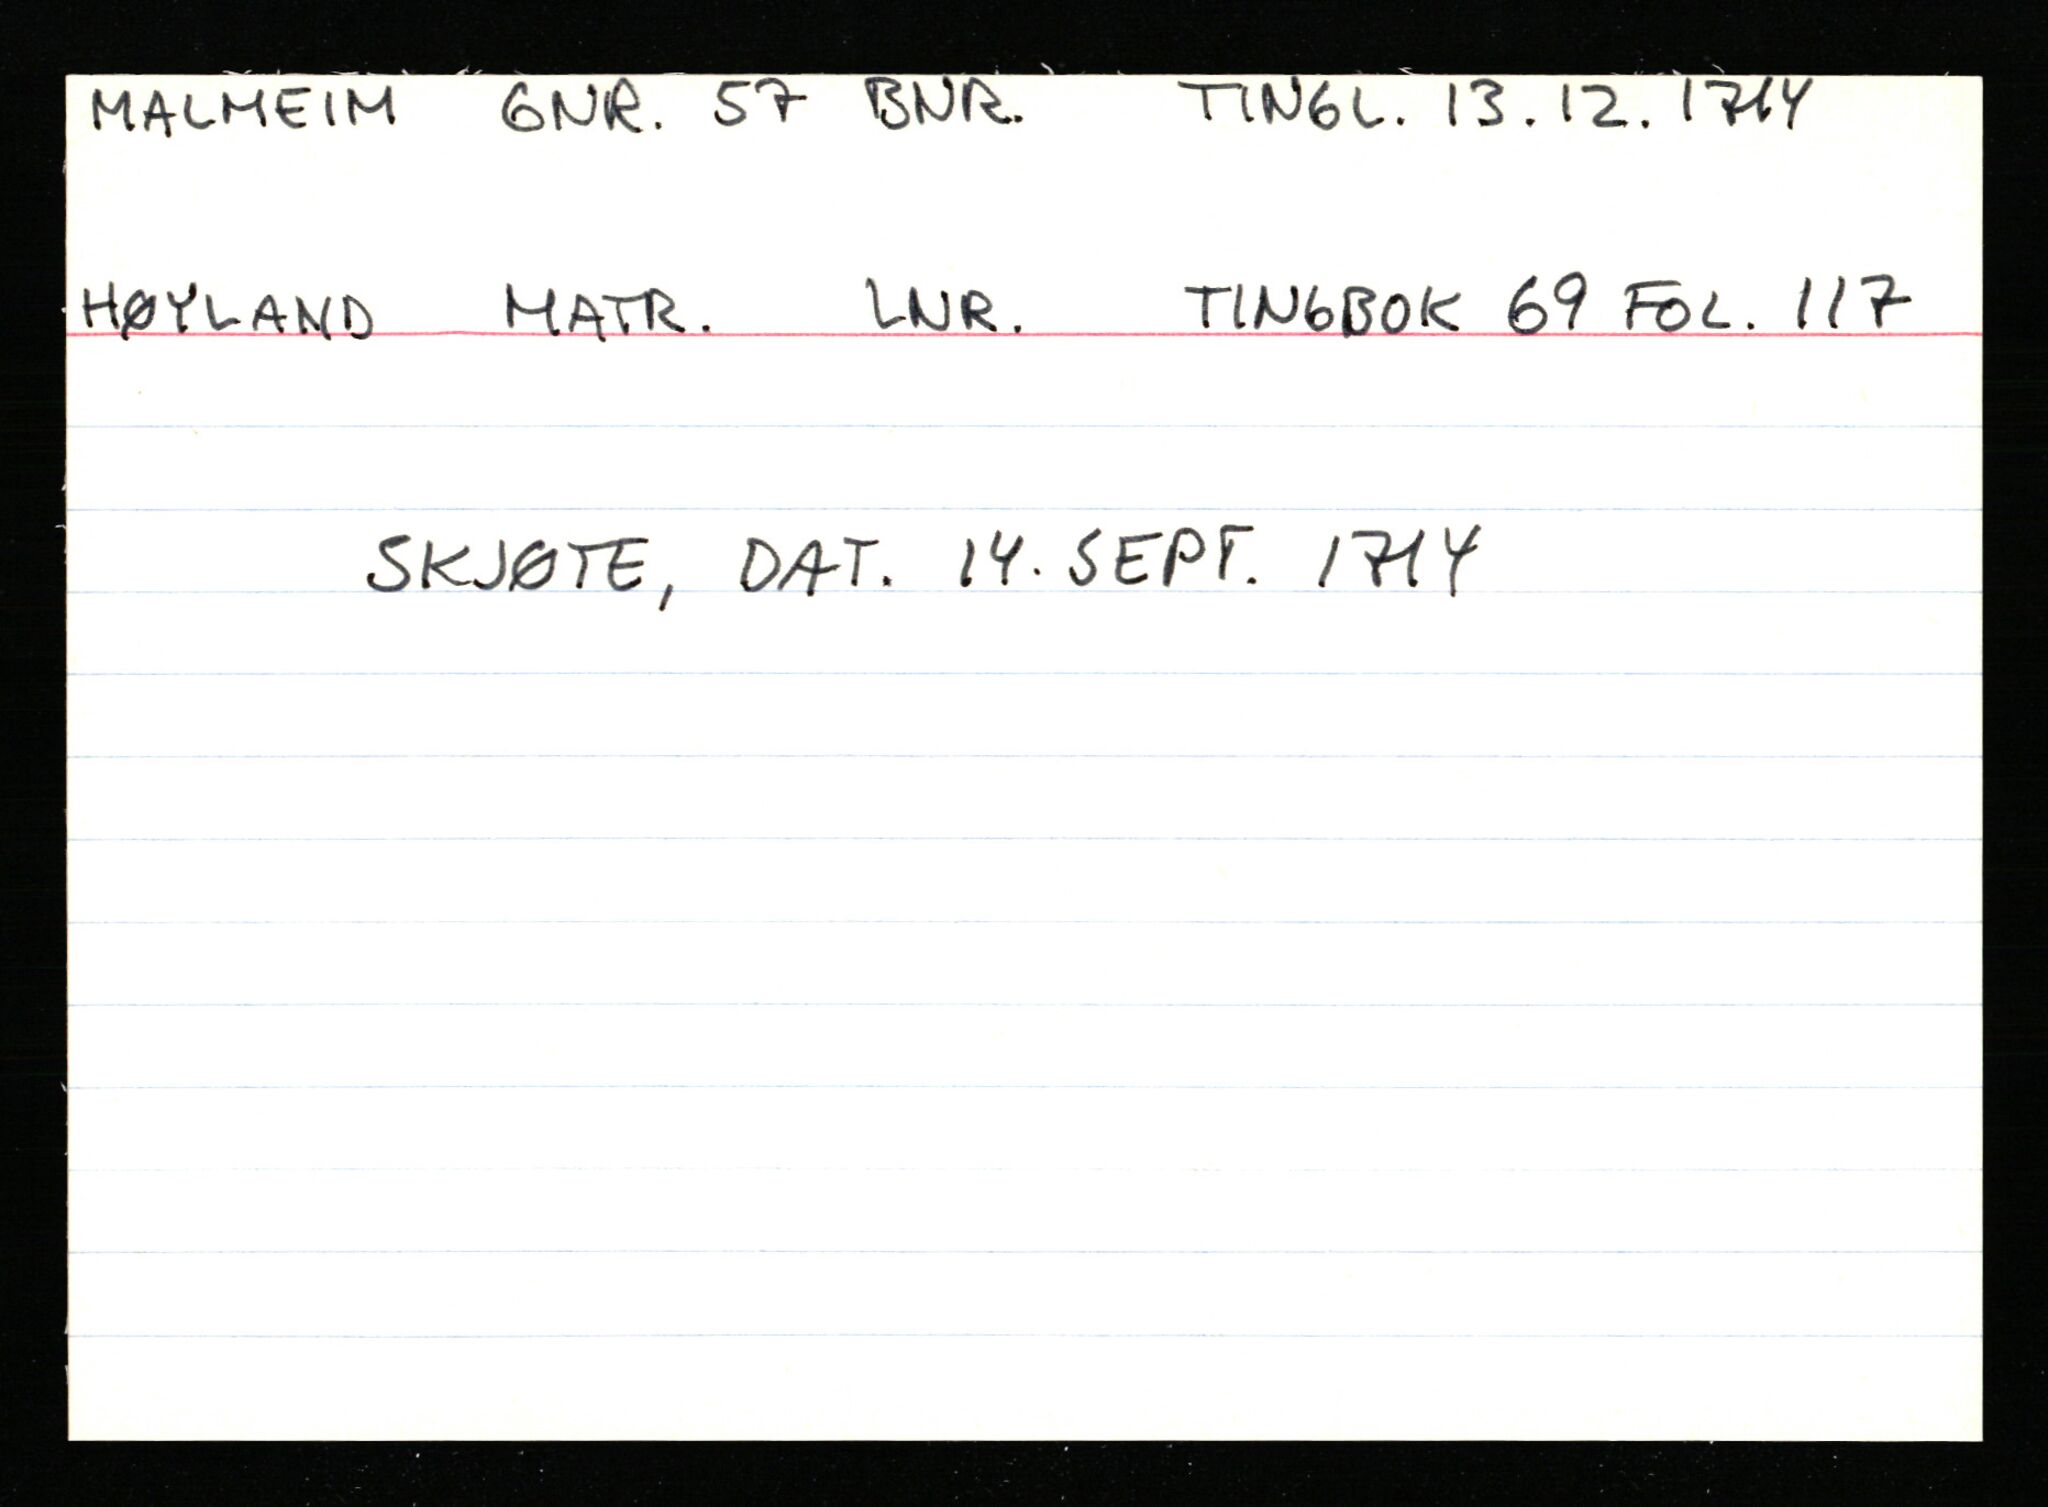 MALMEIM GNR. 57 BNR. TINGL. 13.12.1714
HØYLAND MATR. LNR. TINGBOK 69 FOL. 117
SKJØTE, DAT. 14. SEPT. 1714